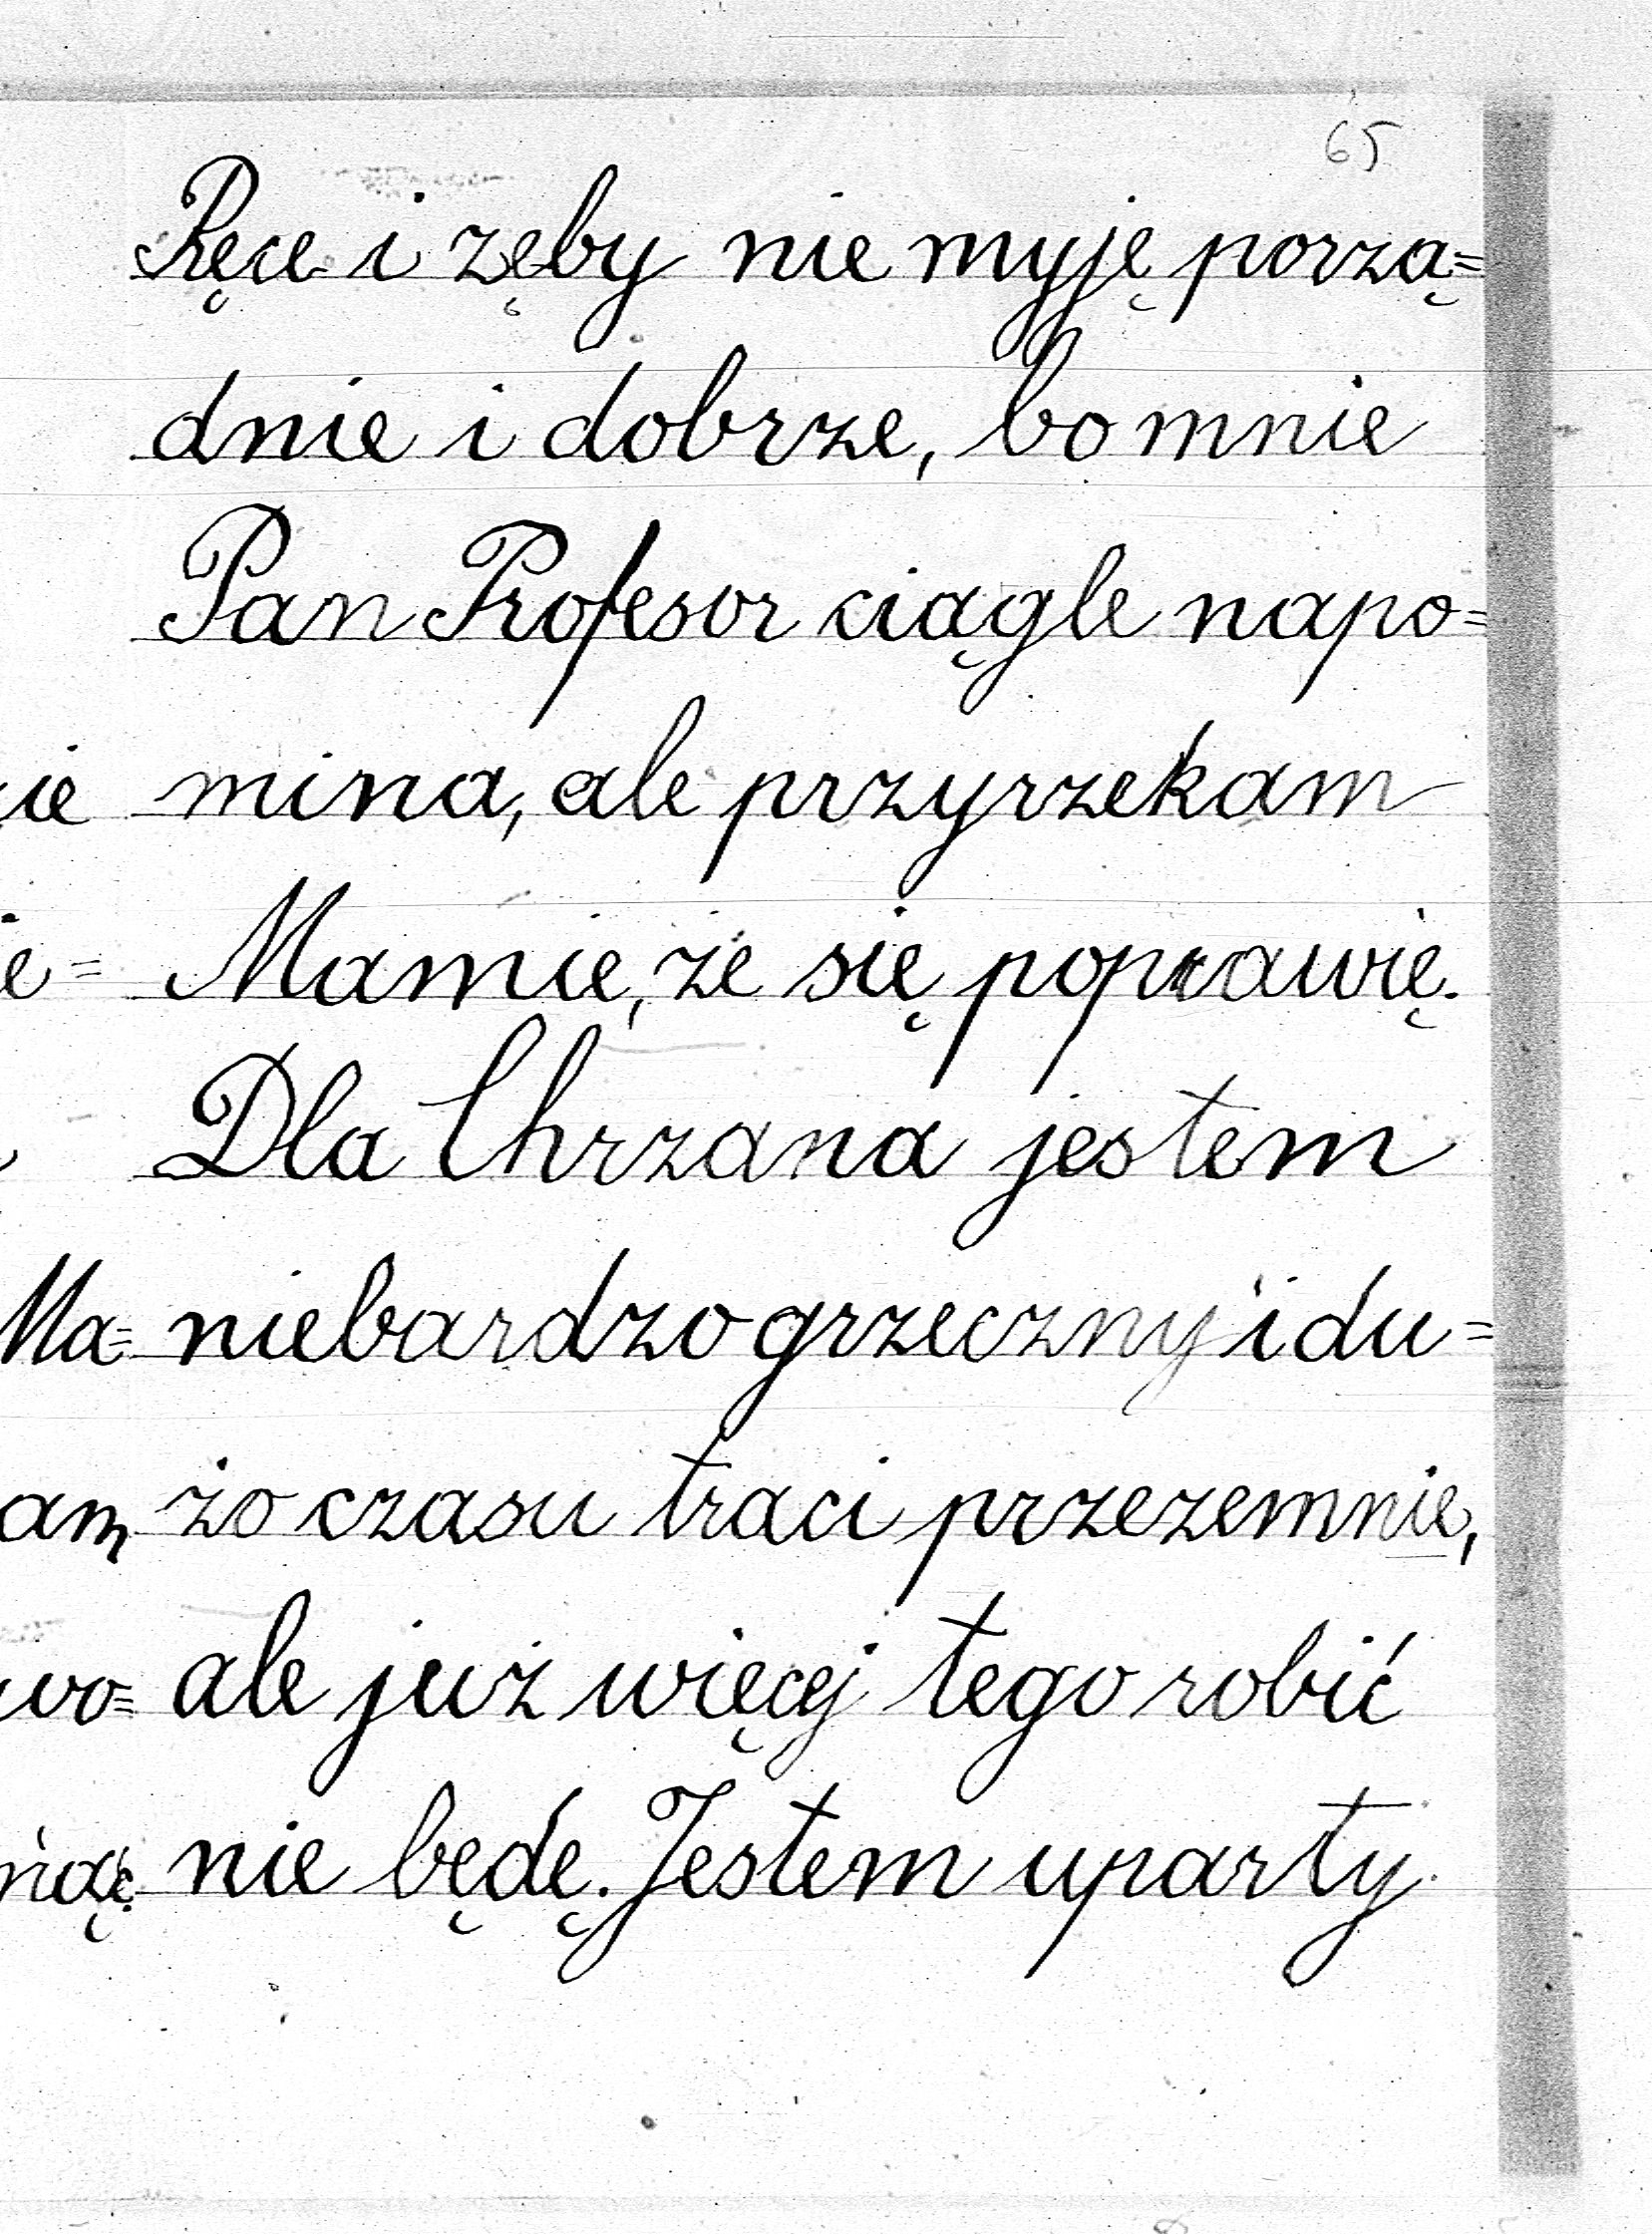 65
Ręce i zęby nie myję porzą=
dnie i dobrze, bo mnie
Pan Profesor ciągle napo=
mina, ale przyrzekam
Mamie, że się poprawię.
Dla Chrzana jestem
niebardzo grzeczny i du=
żo czasu traci przezemnie,
ale już więcej tego robić
nie będę. Jestem uparty